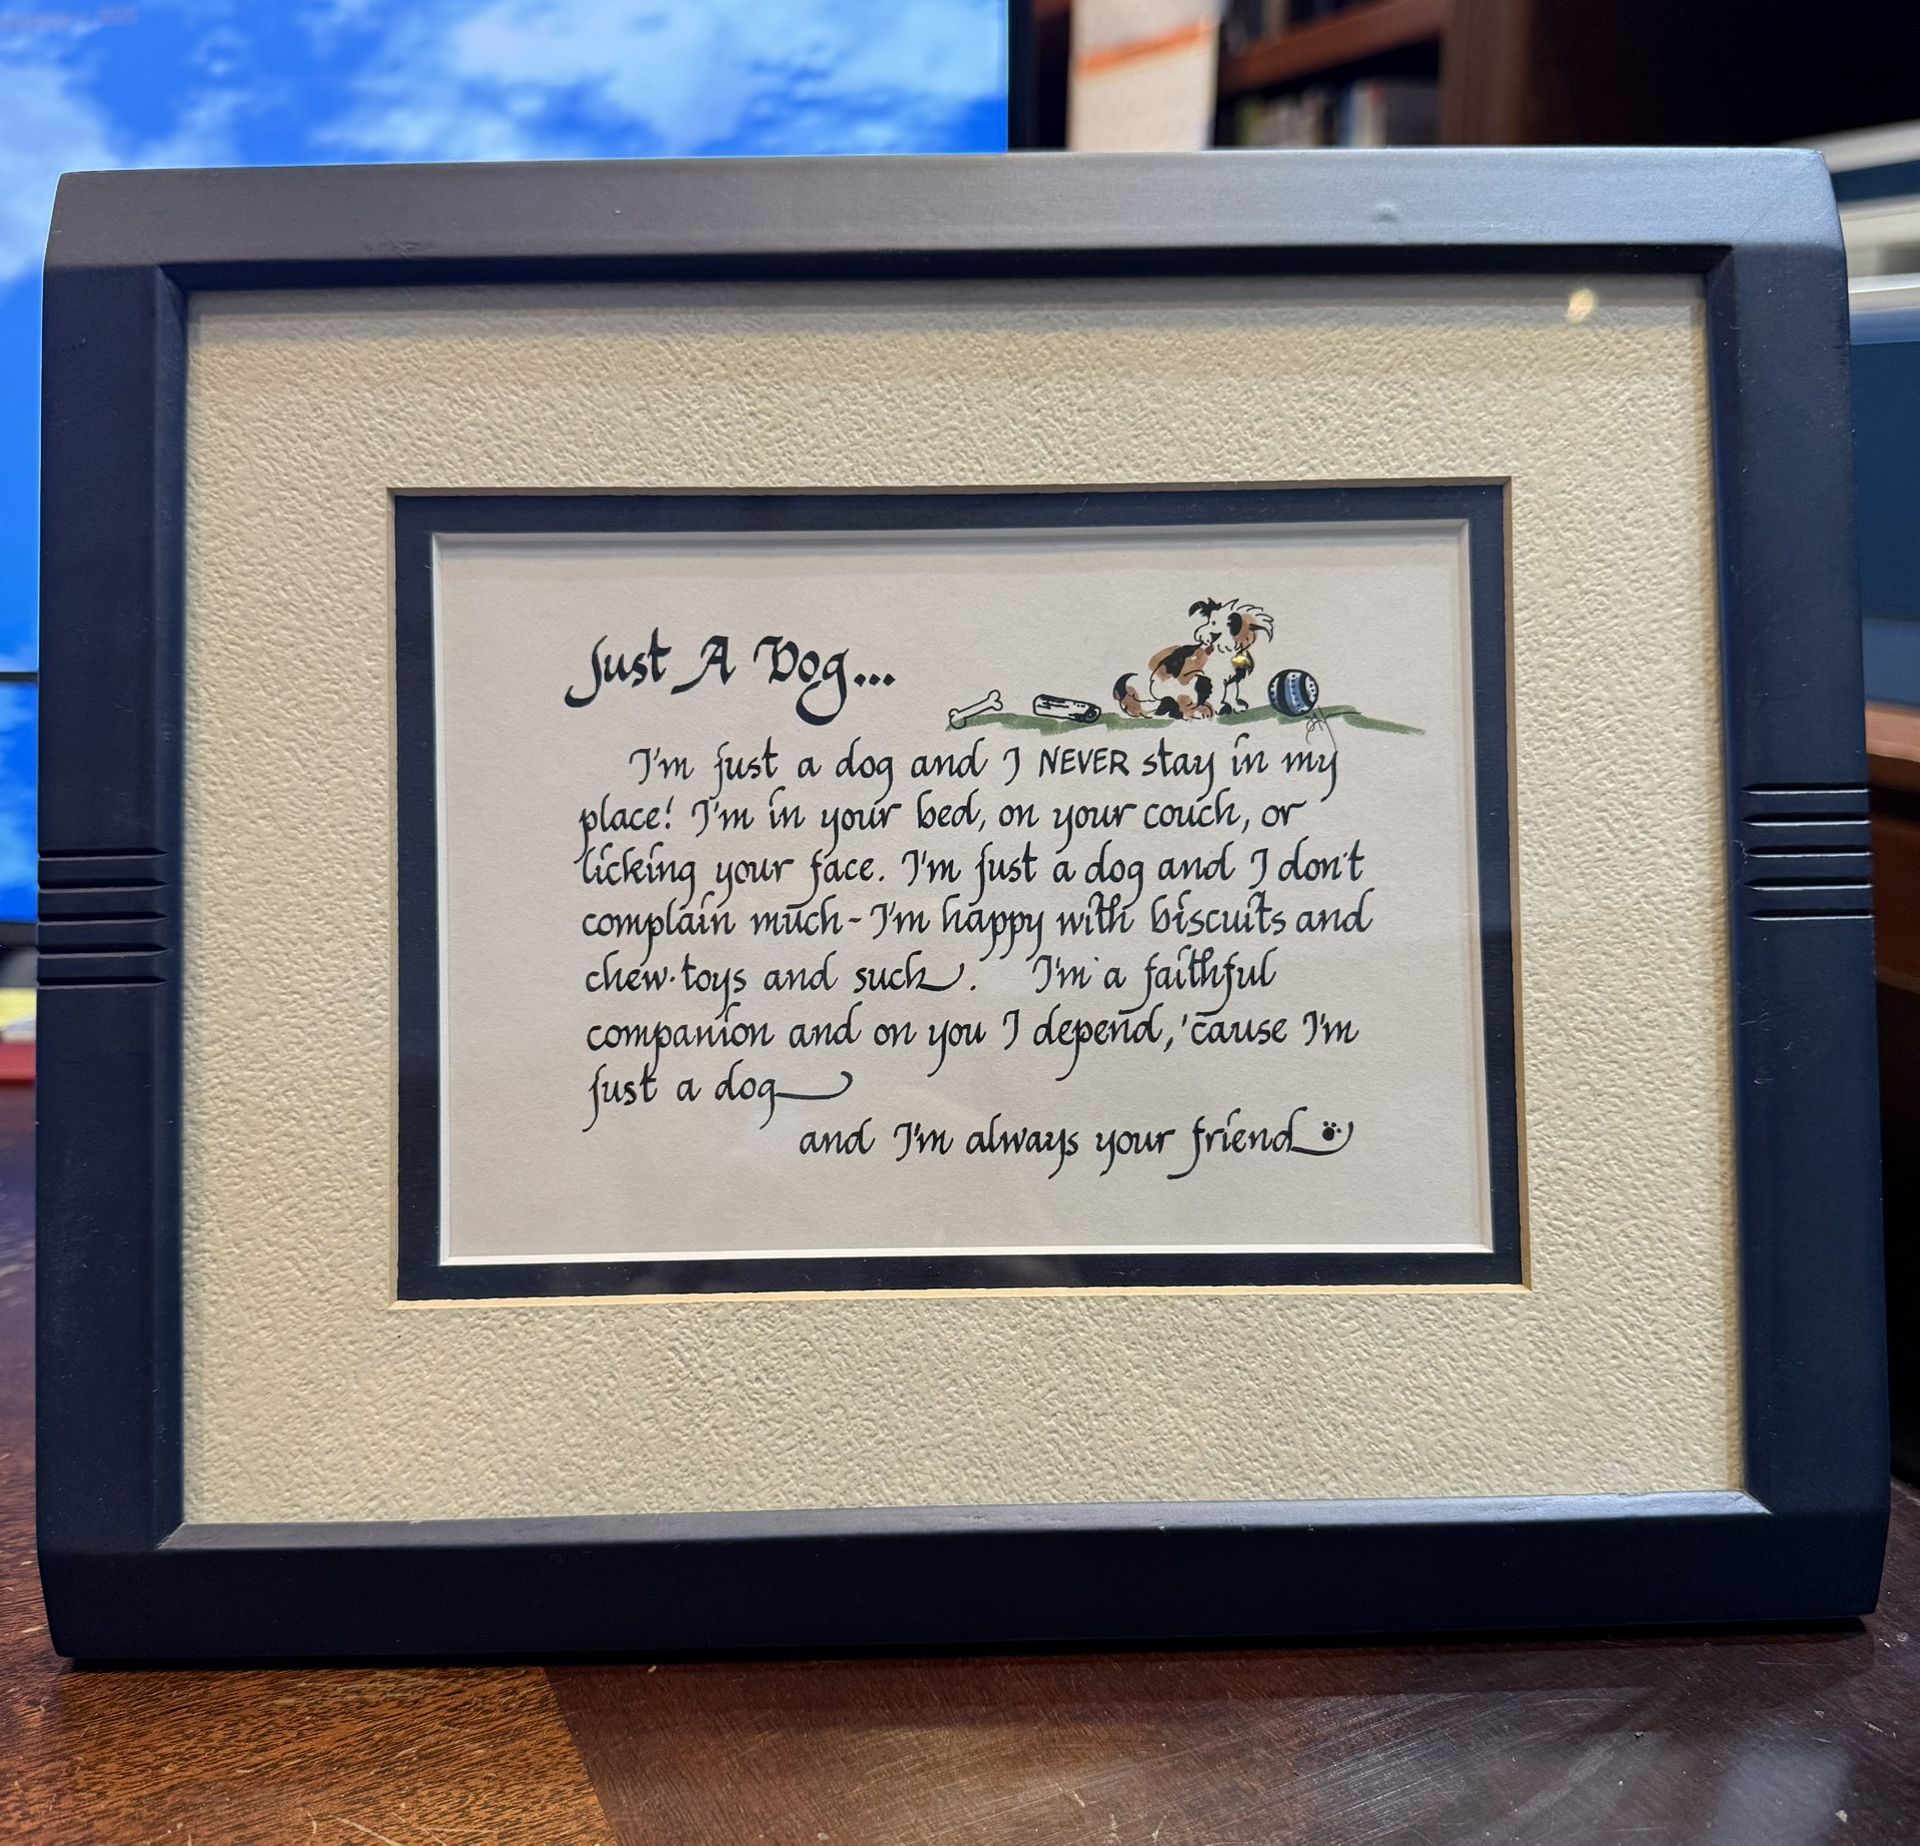 Just A Dog...
I'm just a dog and I NEVER stay in my
place! I'm in your bed, on your couch, or
licking your face. I'm just a dog and I don't
complain much - I'm happy with biscuits and
chew·toys and such. I'm a faithful
companion and on you I depend, 'cause I'm
just a dog
and I'm always your friend